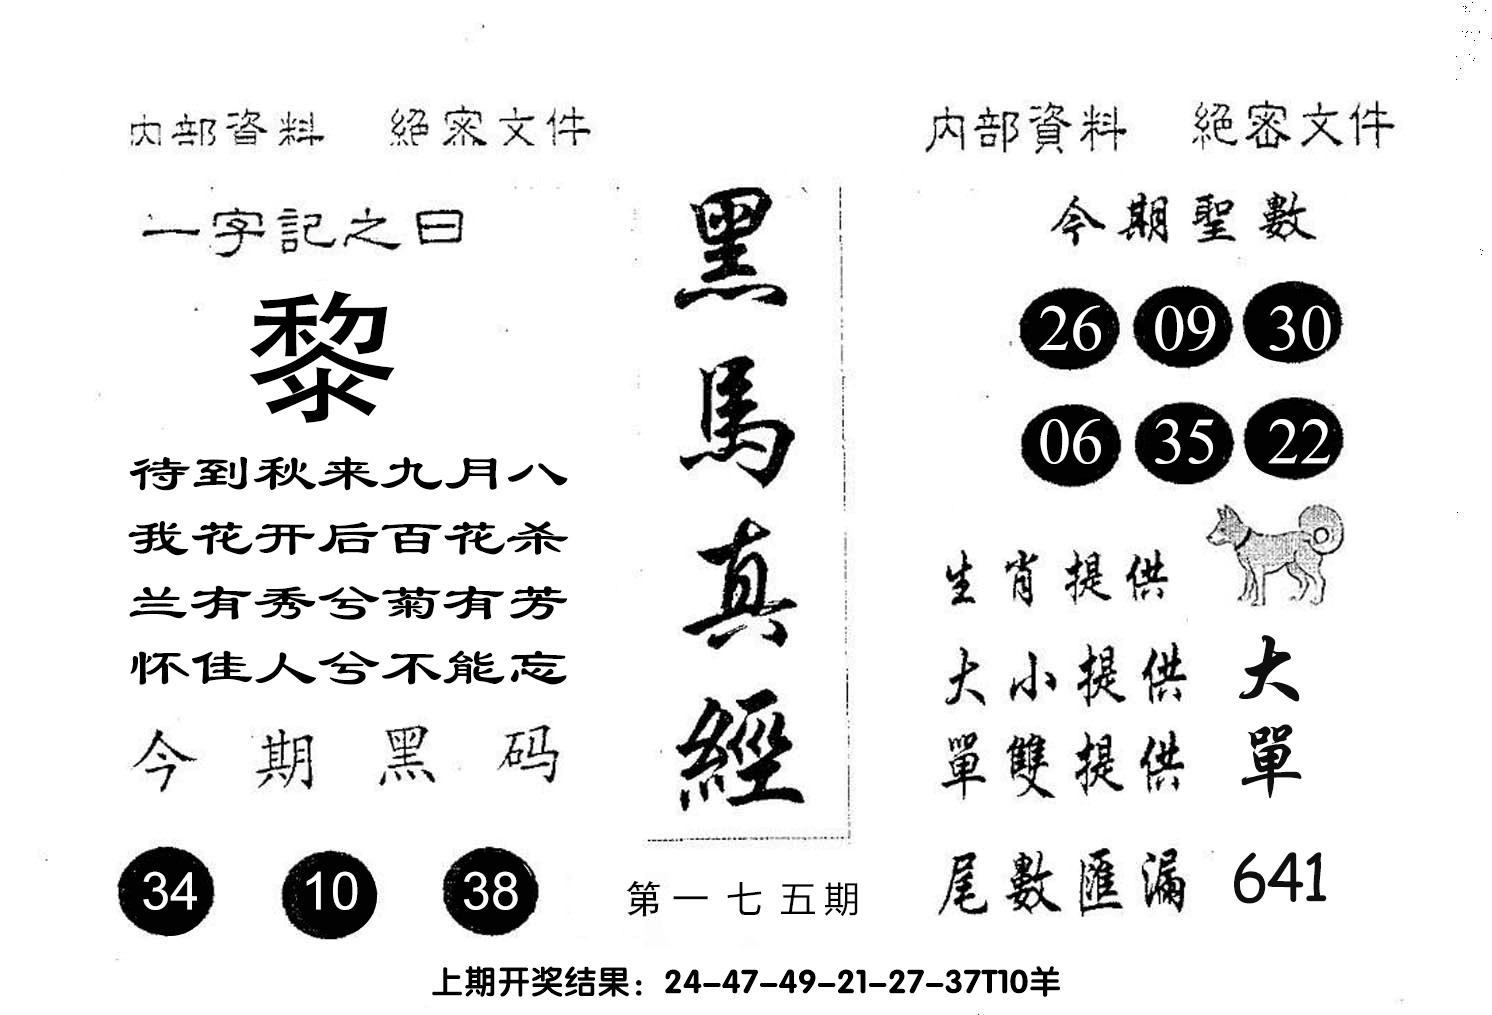 内部資料 絕密文件
一字記之曰
黎
待到秋来九月八
我花开后百花杀
兰有秀兮菊有芳
怀佳人兮不能忘
今期黑码
34 10 38
黑馬真經
第一七五期
内部資料 絕密文件
今期聖數
26 09 30
06 35 22
生肖提供
大小提供 大
單雙提供 單
尾數匯漏 641
上期开奖结果：24-47-49-21-27-37T10羊